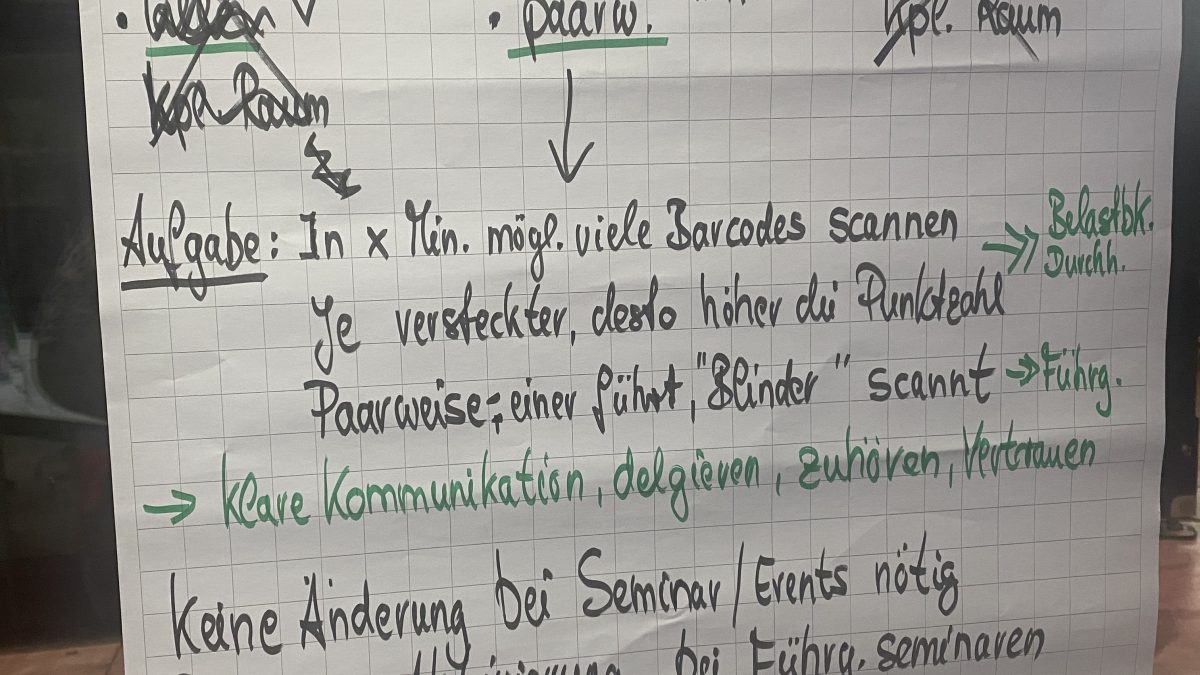 • paarw. kpl. Raum
kpl. Raum
Aufgabe: In x Min. mögl. viele Barcodes scannen
Belastbk.
Durchh.
Je versteckter, desto höher die Punktzahl
Paarweise: einer führt, "Blinder" scannt → Führg.
→ klare Kommunikation, delgieren, zuhören, Vertrauen
Keine Änderung bei Seminar/Events nötig
bei Führg. seminaren